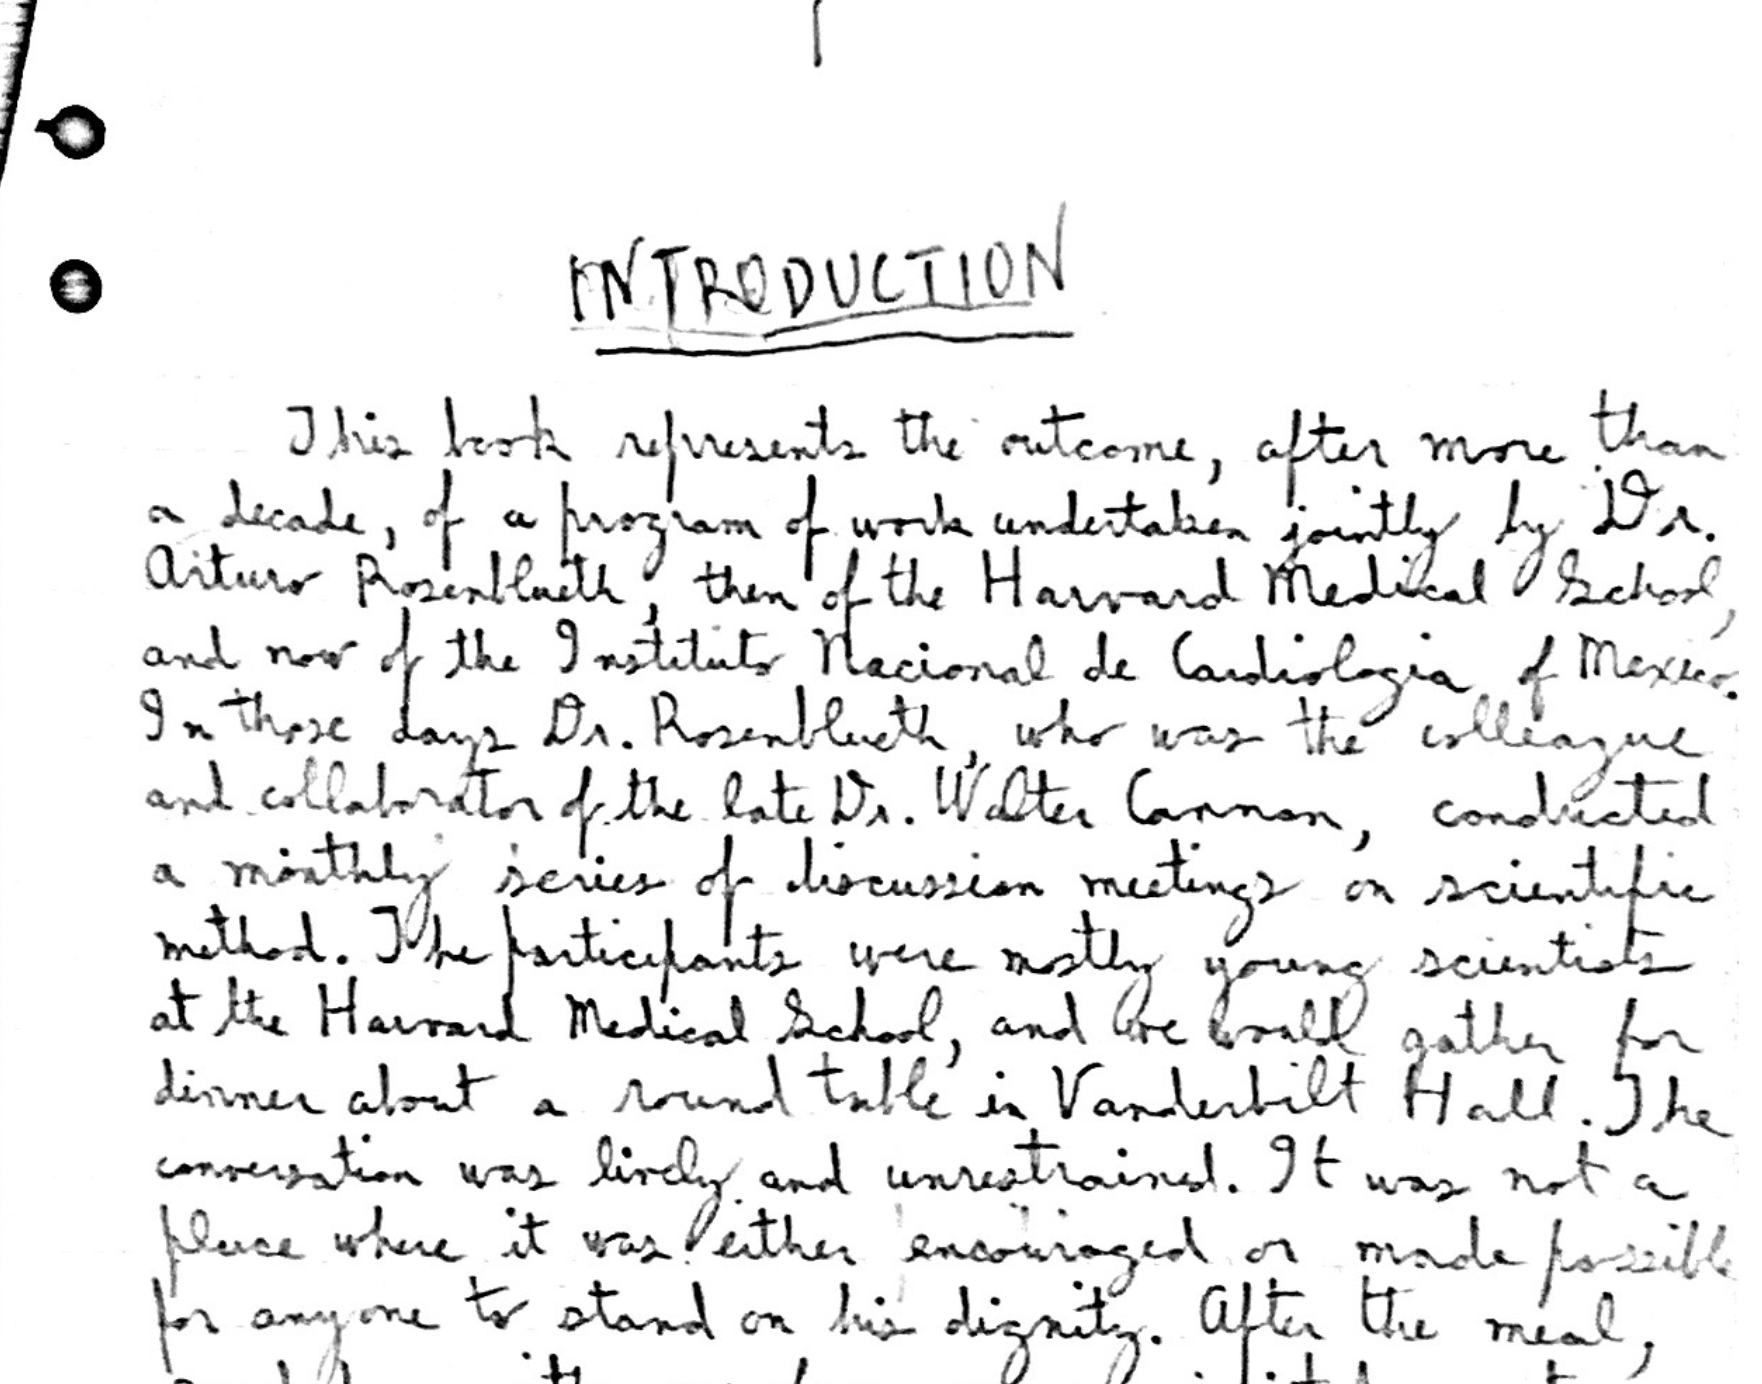 1
INTRODUCTION
This book represents the outcome, after more than
a decade, of a program of work undertaken jointly by Dr.
Arturo Rosenblueth, then of the Harvard Medical School,
and now of the Instituto Nacional de Cardiologia of Mexico.
In those days Dr. Rosenblueth, who was the colleague
and collaborator of the late Dr. Walter Cannon, conducted
a monthly series of discussion meetings on scientific
method. The participants were mostly young scientists
at the Harvard Medical School, and we would gather for
dinner about a round table in Vanderbilt Hall. The
conversation was lively and unrestrained. It was not a
place where it was either encouraged or made possible
for anyone to stand on his dignity. After the meal,